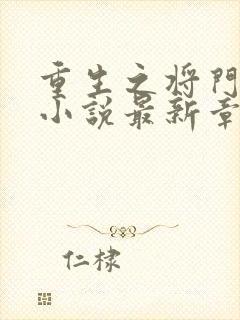 重生之将門
小説最新章
仁棣